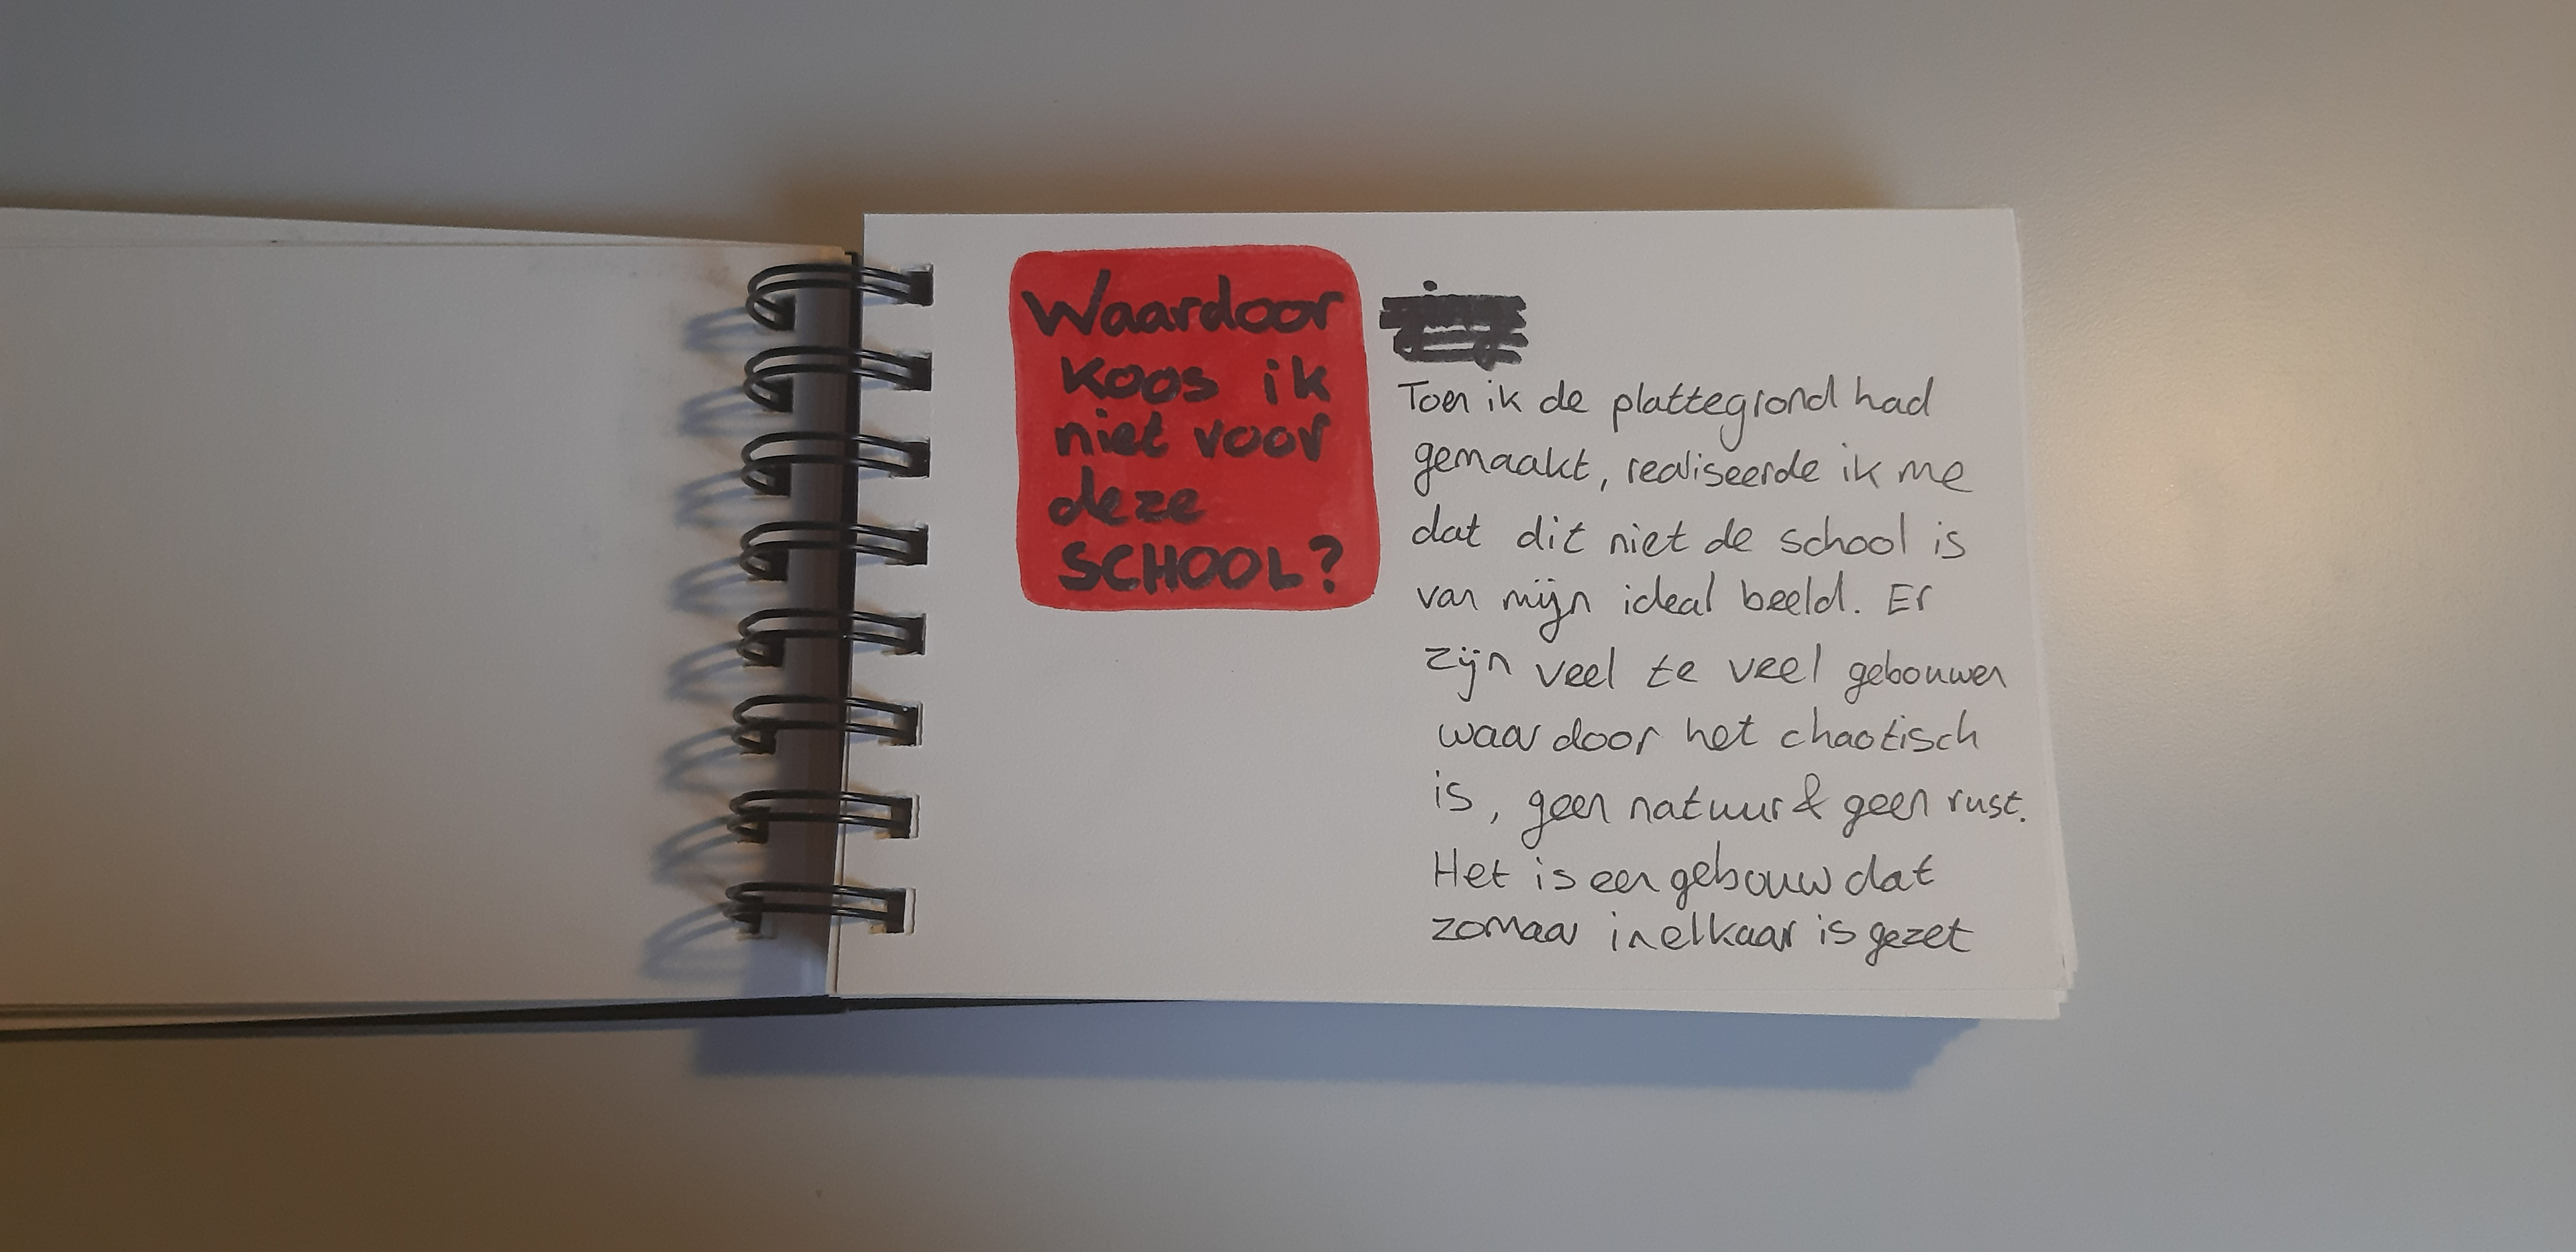 Waardoor
koos ik
niet voor
deze
SCHOOL?
Toen ik de plattegrond had
gemaakt, realiseerde ik me
dat dit niet de school is
van mijn ideal beeld. Er
zijn veel te veel gebouwen
waardoor het chaotisch
is, geen natuur & geen rust.
Het is een gebouw dat
zomaar in elkaar is gezet